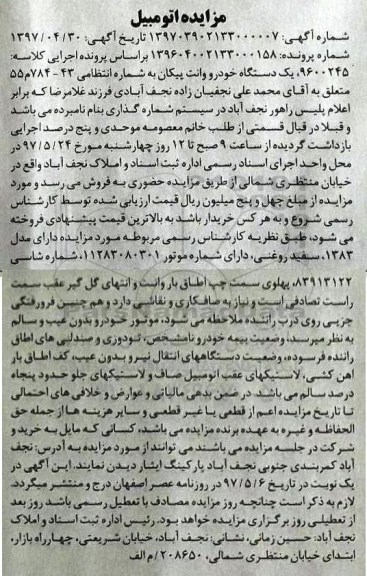 مزایده اتومبیل
شماره آگهی: ۱۳۹۷۰۳۹۰۲۱۳۳۰۰۰۰۰۷ تاریخ آگهی: ۱۳۹۷/۰۴/۳۰
شماره پرونده: ۱۳۹۶۰۴۰۰۲۱۳۳۰۰۰۱۵۸ براساس پرونده اجرایی کلاسه:
۹۶۰۰۲۴۵، یک دستگاه خودرو وانت پیکان به شماره انتظامی ۴۳ - ۷۸۴م۵۵
متعلق به آقای محمد علی نجفیان زاده نجف آبادی فرزند غلامرضا که برابر
اعلام پلیس راهور نجف آباد در سیستم شماره گذاری بنام نامبرده می باشد
و قبلا در قبال قسمتی از طلب خانم معصومه موحدی و پنج درصد اجرایی
بازداشت گردیده از ساعت ۹ صبح تا ۱۲ روز چهارشنبه مورخ ۹۷/۵/۲۴ در
محل واحد اجرای اسناد رسمی اداره ثبت اسناد و املاک نجف آباد واقع در
خیابان منتظری شمالی از طریق مزایده حضوری به فروش می رسد و مورد
مزایده از مبلغ چهل و پنج میلیون ریال قیمت ارزیابی شده توسط کارشناس
رسمی شروع و به هر کس خریدار باشد به بالاترین قیمت پیشنهادی فروخته
می شود، طبق نظریه کارشناس رسمی مربوطه مورد مزایده دارای مدل
۱۳۸۳، سفید روغنی، دارای شماره موتور ۱۱۲۸۳۰۸۰۳۰۱، شماره شاسی
۸۳۹۱۳۱۲۲، پهلوی سمت چپ اطاق بار وانت و انتهای گل گیر عقب سمت
راست تصادفی است و نیاز به صافکاری و نقاشی دارد و هم چنین فرورفتگی
جزیی روی درب راننده ملاحظه می شود، موتور خودرو بدون عیب و سالم
به نظر میرسد، وضعیت بیمه خودرو نامشخص، تودوزی و صندلیی های اطاق
راننده فرسوده، وضعیت دستگاههای انتقال نیرو بدون عیب، کف اطاق بار
اهن کشی، لاستیکهای عقب اتومبیل صاف و لاستیکهای جلو حدود پنجاه
درصد سالم می باشد. در ضمن بدهی مالیاتی و عوارض و خلافی های احتمالی
تا تاریخ مزایده اعم از قطعی یا غیر قطعی و سایر هزینه ها از جمله حق
الحفاظه و غیره به عهده برنده مزایده می باشد، کسانی که مایل به خرید و
شرکت در جلسه مزایده می باشند می توانند از مورد مزایده به آدرس: نجف
آباد کمربندی جنوبی نجف آباد پارکینگ ایثار دیدن نمایند. این آگهی در
یک نوبت در تاریخ ۹۷/۵/۶ در روزنامه عصر اصفهان درج و منتشر میگردد.
لازم به ذکر است چنانچه روز مزایده مصادف با تعطیل رسمی باشد روز بعد
از تعطیلی روز برگزاری مزایده خواهد بود. رئیس اداره ثبت اسناد و املاک
نجف آباد: حسین زمانی، نشانی: نجف آباد، خیابان شریعتی، چهارراه بازار،
ابتدای خیابان منتظری شمالی، ۲۰۸۶۵۰ /م الف